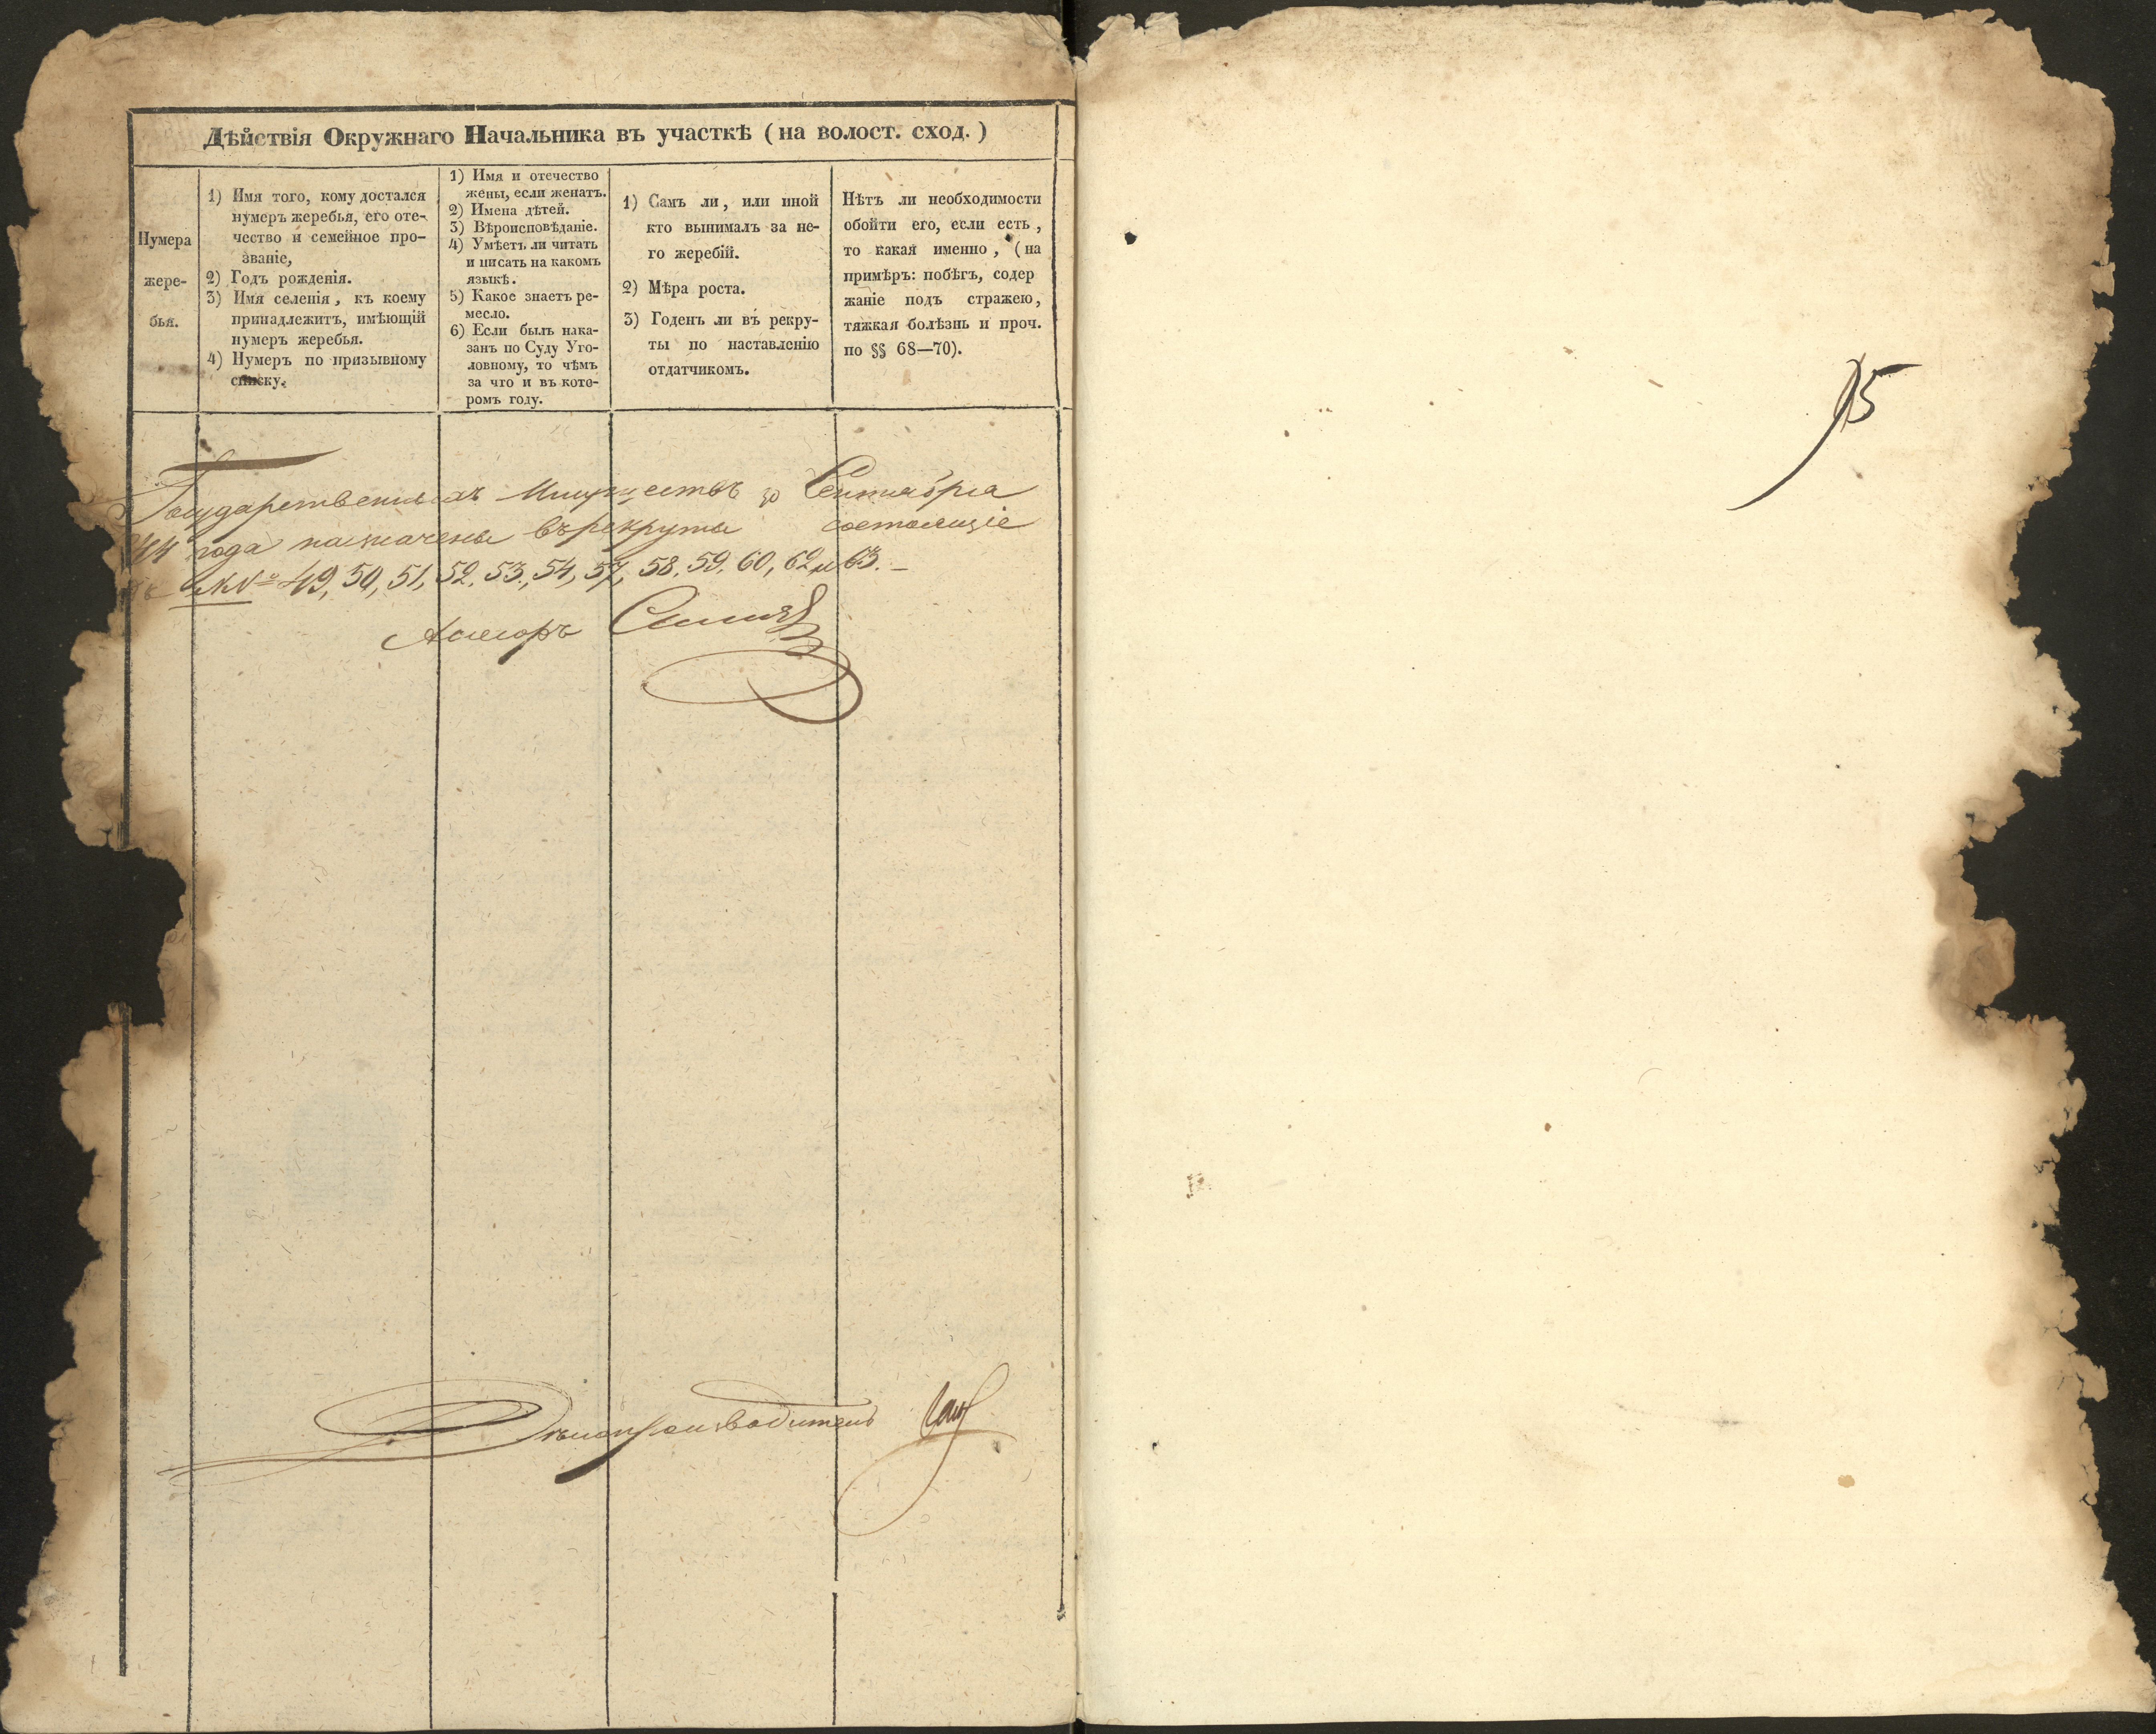 Дѣйствія Окружнаго Начальника въ участкѣ (на волост. сход.)
Нумера
жере-
бья.
1) Имя того, кому достался
нумеръ жеребья, его оте-
чество и семейное про-
званіе,
2) Годъ рожденія.
3) Имя селенія, къ коему
принадлежитъ, имѣющій
нумеръ жеребья.
4) Нумеръ по призывному
списку.
1) Имя и отечество
жены, если женатъ.
2) Имена дѣтей.
3) Вѣроисповѣданіе.
4) Умѣетъ ли читать
и писать на какомъ
языкѣ.
5) Какое знаетъ ре-
месло.
6) Если былъ нака-
занъ по Суду Уго-
ловному, то чѣмъ
за что и въ кото-
ромъ году.
1) Самъ ли, или иной
кто вынималъ за не-
го жеребій.
2) Мѣра роста.
3) Годенъ ли въ рекру-
ты по наставленію
отдатчикомъ.
Нѣтъ ли необходимости
обойти его, если есть,
то какая именно, (на
примѣръ: побѣгъ, содер
жаніе подъ стражею,
тяжкая болѣзнь и проч.
по §§ 68—70).
Государственныхъ Имуществъ 30 Сентября
44 года назначены въ рекруты состоящіе
№№ 49, 50, 51, 52, 53, 54, 57, 58, 59, 60, 62 и 63.—
Асессоръ
Дѣлопроизводитель
95